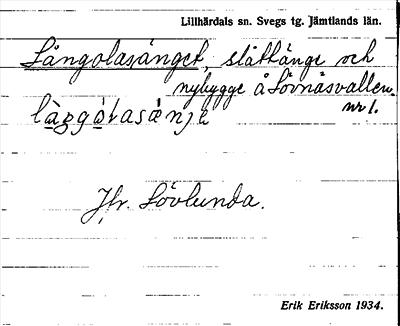 Lillhärdals sn. Svegs tg. Jämtlands län.
Långolasänget, slåttänge och
nybygge å Lövnäsvallen
nr 1.
Jfr. Lövlunda.
Erik Eriksson 1934.